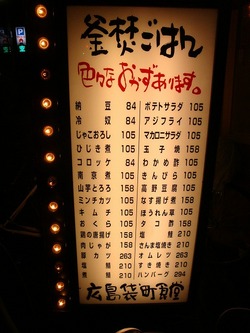 釜焚ごはん
色々なおかずあります。
納豆 84 ポテトサラダ 105
冷奴 84 アジフライ 105
じゃこおろし 105 マカロニサラダ 105
ひじき煮 105 玉子焼 158
コロッケ 84 わかめ酢 105
南京煮 105 きんぴら 105
山芋とろろ 158 高野豆腐 105
ミンチカツ 105 なす揚げ煮 158
キムチ 105 ほうれん草 105
おくら 105 タコ酢 158
鶏の唐揚げ 158 塩鯖 210
肉じゃが 158 さんま塩焼き 210
豚カツ 263 オムレツ 263
塩鮭 210 すき焼き 210
刺身 210 ハンバーグ 294
広島袋町食堂